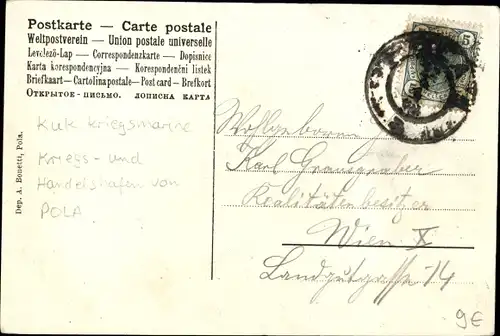 Postkarte — Carte postale
Weltpostverein — Union postale universelle
Levelező-Lap — Correspondenzkarte — Dopisnice
Karta korespondencyjna — Korespondenční listek
Briefkaart — Cartolina postale — Post card — Brefkort
Открытое письмо. дописна карта
5
Kuk Kriegsmarine
Kriegs- und
Handelshafen von
POLA
Dep. A. Bonetti, Pola.
Wohlgeboren
Karl
Realitätenbesitzer
Wien X
Landgutgasse 14
9€